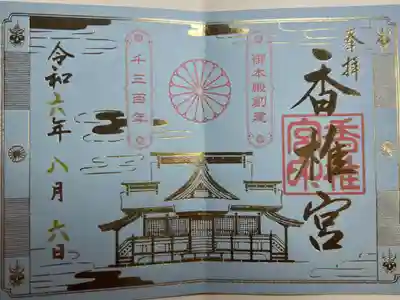 奉拝
香椎宮
香椎
宮印
御本殿創建
千三百年
令和六年八月六日